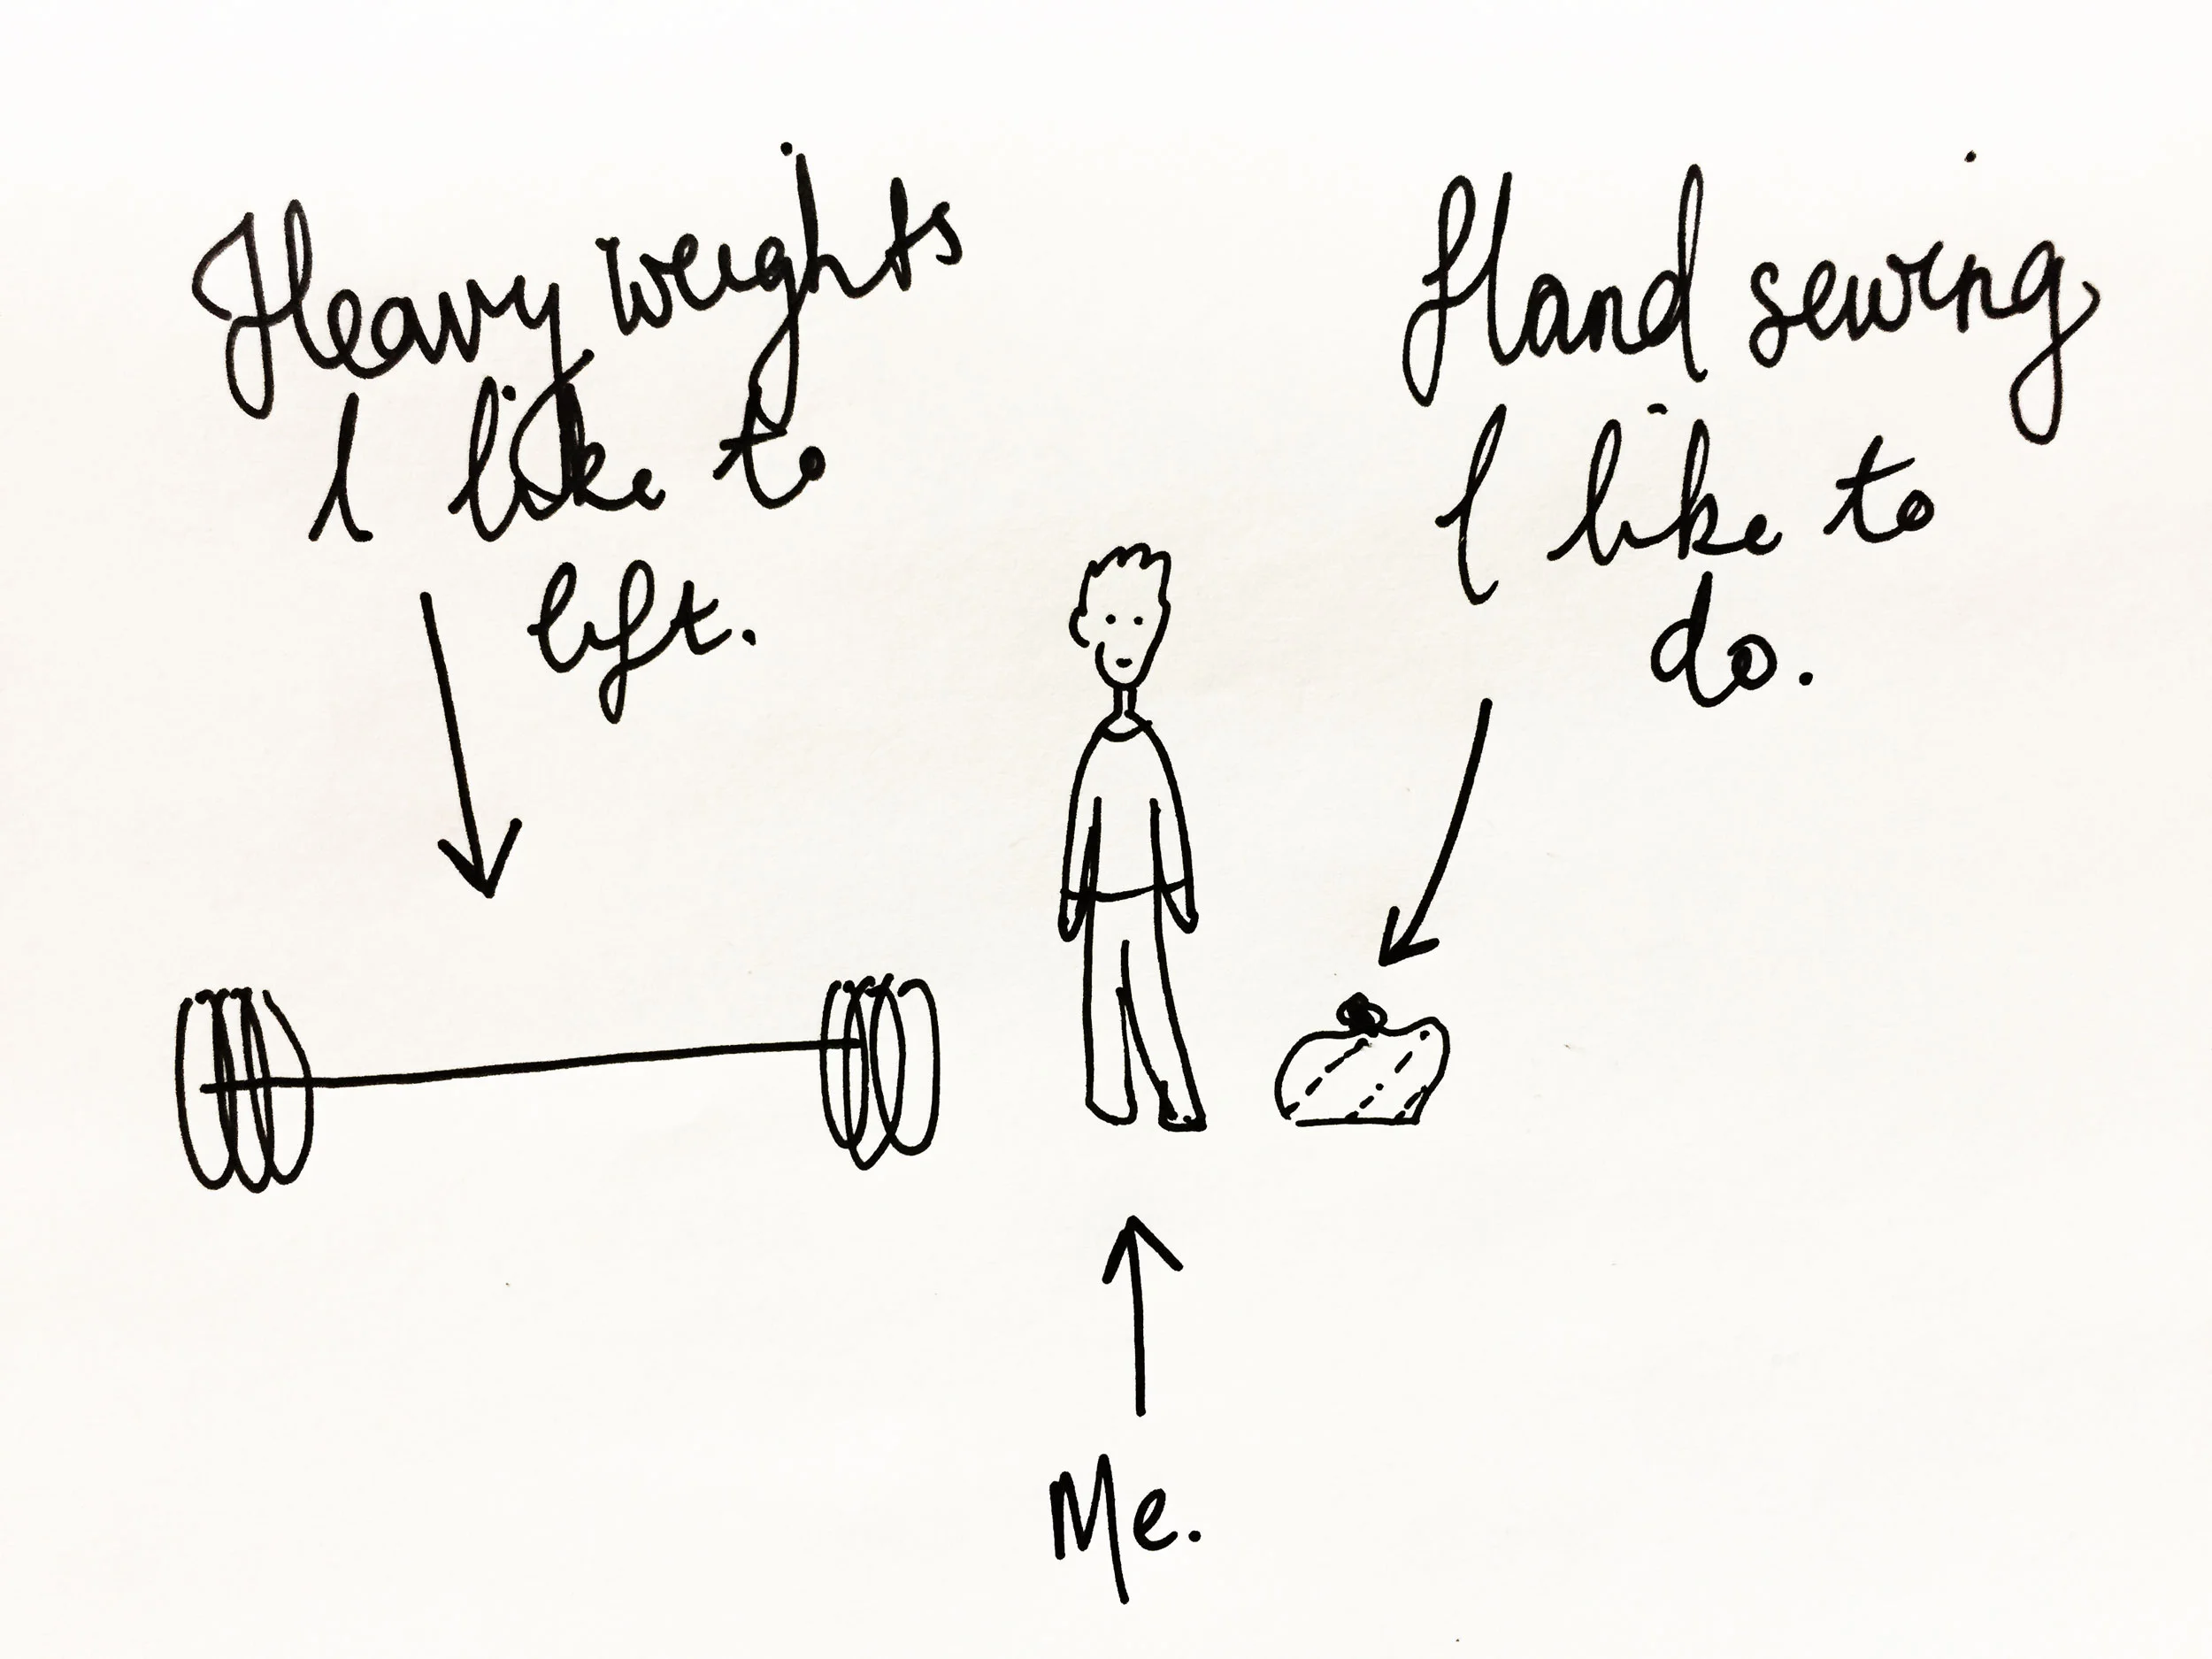 Heavy weights
I like to
lift.
Hand sewing
I like to
do.
Me.